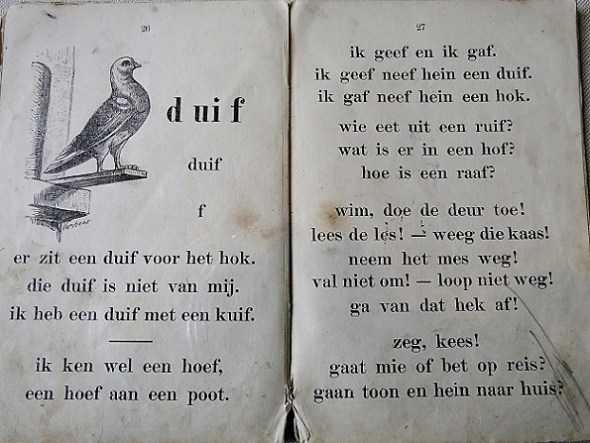 26
d ui f
duif
f
er zit een duif voor het hok.
die duif is niet van mij.
ik heb een duif met een kuif.
ik ken wel een hoef,
een hoef aan een poot.
27
ik geef en ik gaf.
ik geef neef hein een duif.
ik gaf neef hein een hok.
wie eet uit een ruif?
wat is er in een hof?
hoe is een raaf?
wim, doe de deur toe!
lees de les! — weeg die kaas!
neem het mes weg!
val niet om! — loop niet weg!
ga van dat hek af!
zeg, kees!
gaat mie of bet op reis?
gaan toon en hein naar huis?